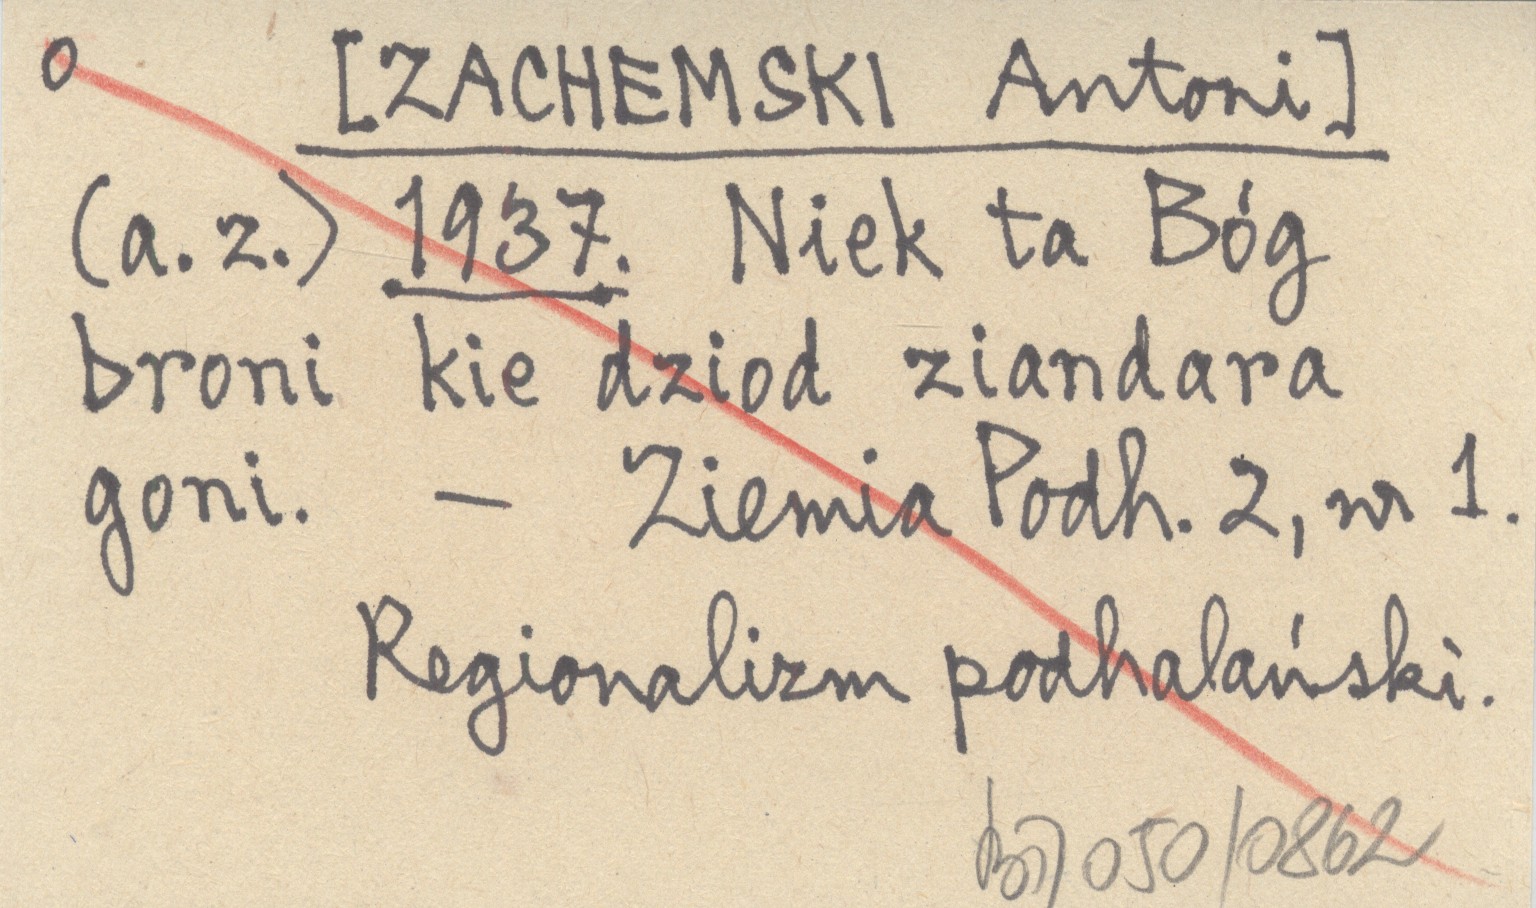 o [ZACHEMSKI Antoni]
(a. z.) 1937. Niek ta Bóg
broni kie dziod ziandara
goni. — Ziemia Podh. 2, nr 1.
Regionalizm podhalański.
050/0862